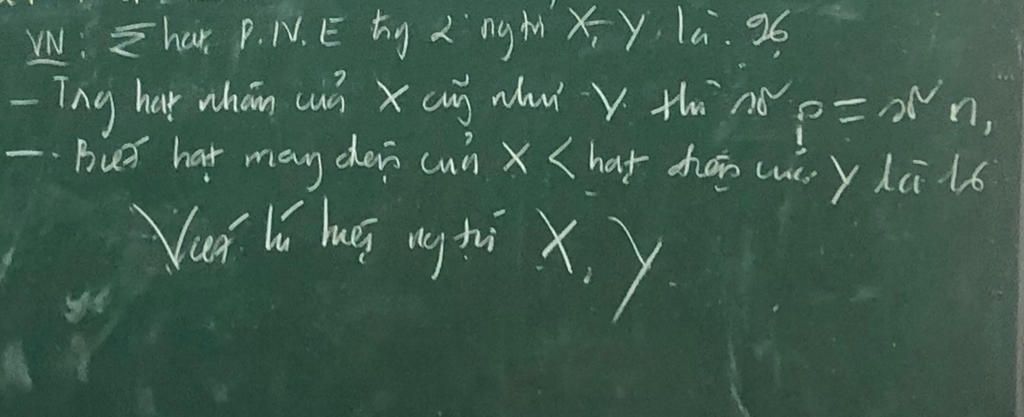 VN: Σ hạt P.N.E tg 2 ngtử X, Y là: 96
- Tng hạt nhân của X cũg như Y thì số p = số n,
- Biết hạt mang điện của X < hạt điện của Y là 16
Viết kí hiệu ngtử X, Y